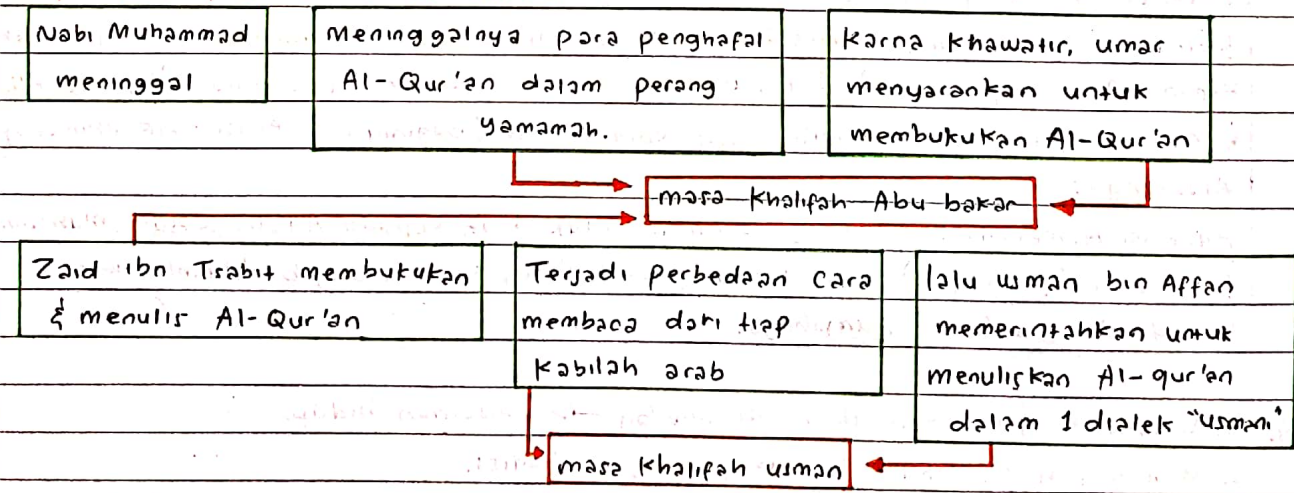 Nabi Muhammad
meninggal
Meninggalnya para penghafal
Al-Qur'an dalam perang
yamamah.
Karna khawatir, umar
menyarankan untuk
membukukan Al-Qur'an
masa Khalifah Abu bakar
Zaid ibn Tsabit membukukan
& menulis Al-Qur'an
Terjadi perbedaan cara
membaca dari tiap
kabilah arab
lalu usman bin Affan
memerintahkan untuk
menuliskan Al-qur'an
dalam 1 dialek "usmani"
masa khalifah usman